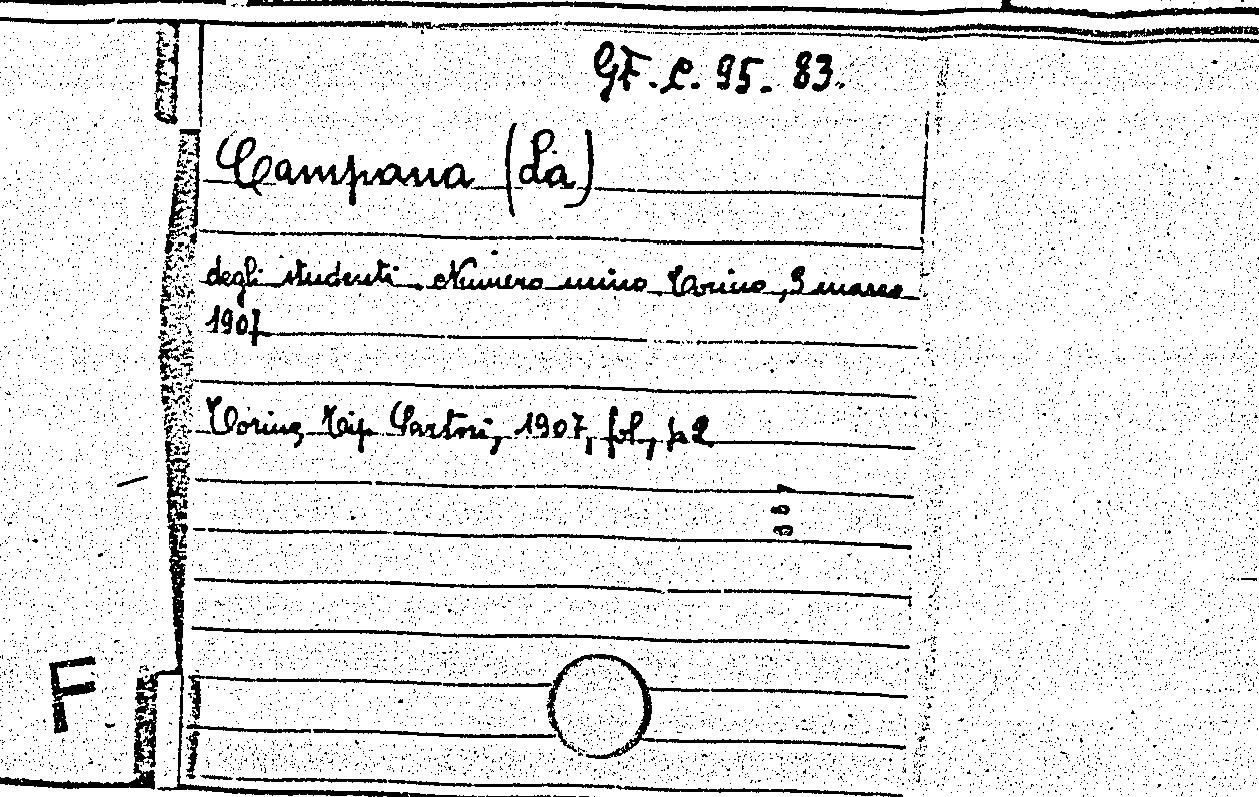 GF. C. 95. 83.
Campana (La)
degli studenti. Numero unico Torino, 9 marzo
1907
Torino, Tip. Sartori, 1907, fol., p. 2
F